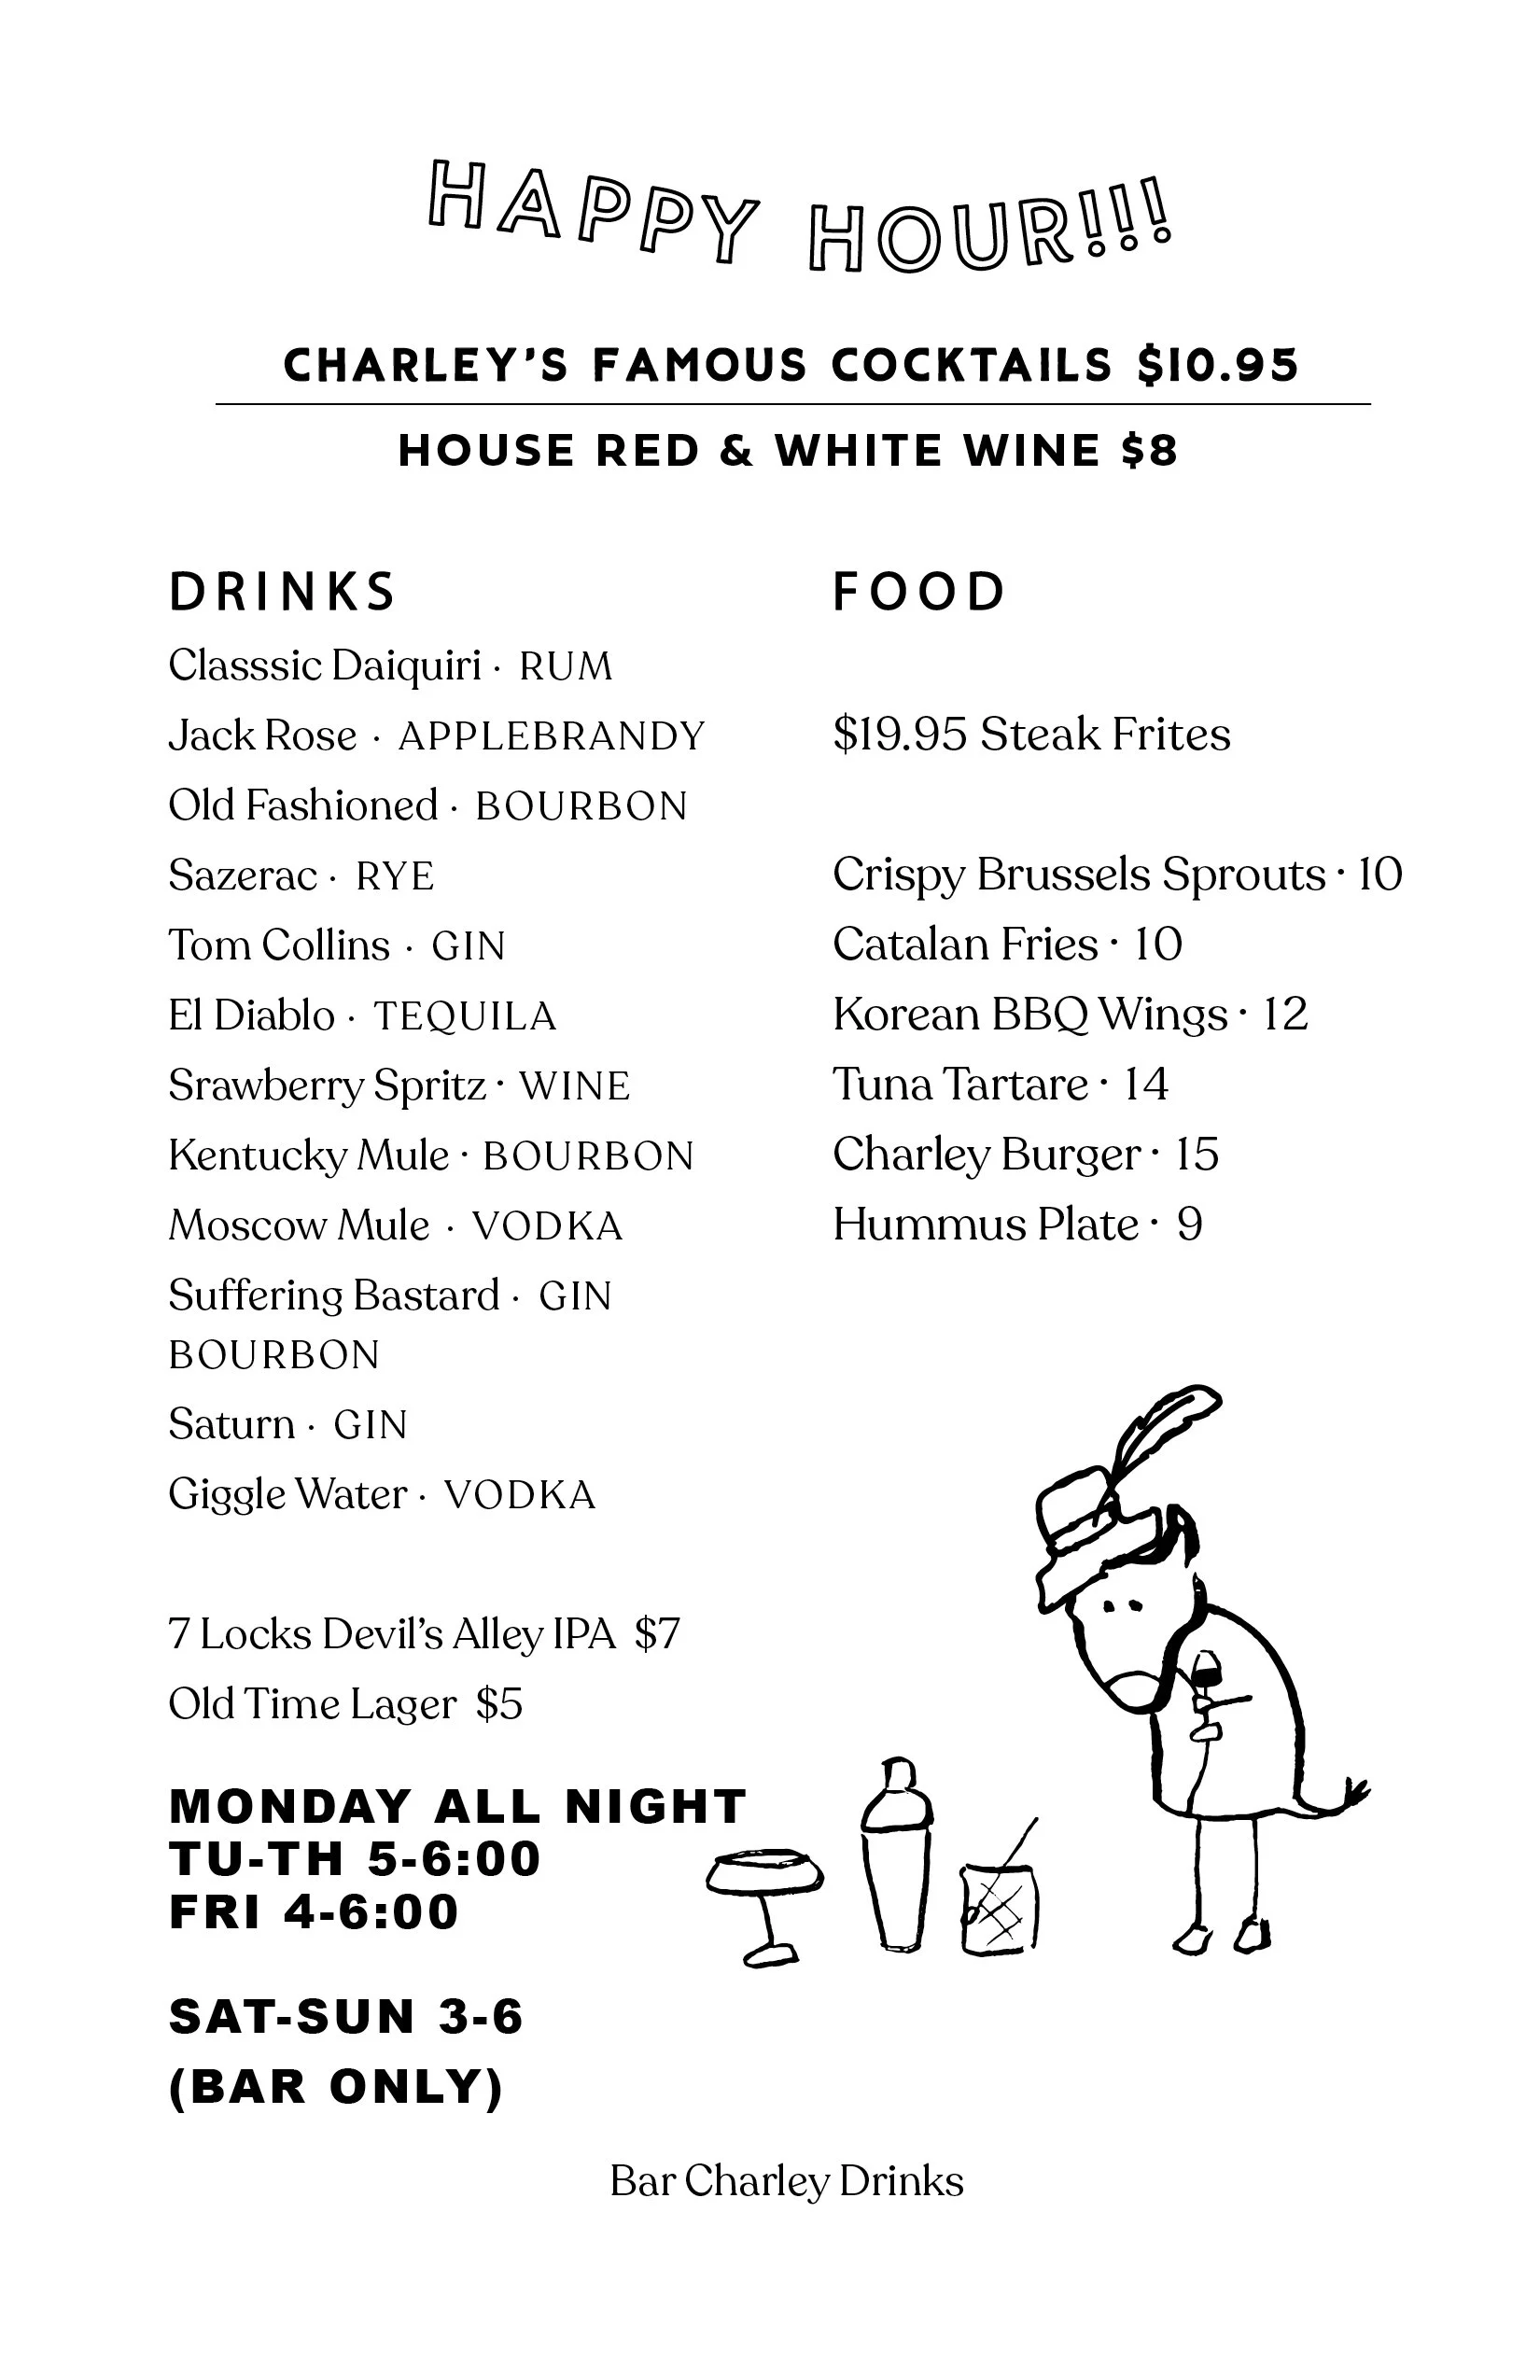 HAPPY HOUR!!!
CHARLEY’S FAMOUS COCKTAILS $10.95
HOUSE RED & WHITE WINE $8
DRINKS
Classsic Daiquiri · RUM
Jack Rose · APPLEBRANDY
Old Fashioned · BOURBON
Sazerac · RYE
Tom Collins · GIN
El Diablo · TEQUILA
Srawberry Spritz · WINE
Kentucky Mule · BOURBON
Moscow Mule · VODKA
Suffering Bastard · GIN
BOURBON
Saturn · GIN
Giggle Water · VODKA
7 Locks Devil’s Alley IPA $7
Old Time Lager $5
FOOD
$19.95 Steak Frites
Crispy Brussels Sprouts · 10
Catalan Fries · 10
Korean BBQ Wings · 12
Tuna Tartare · 14
Charley Burger · 15
Hummus Plate · 9
MONDAY ALL NIGHT
TU-TH 5-6:00
FRI 4-6:00
SAT-SUN 3-6
(BAR ONLY)
Bar Charley Drinks